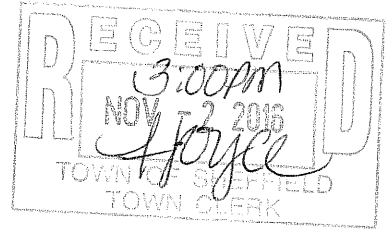 RECEIVED
3:00pm
NOV - 2 2016
TOWN OF SHEFFIELD
TOWN CLERK